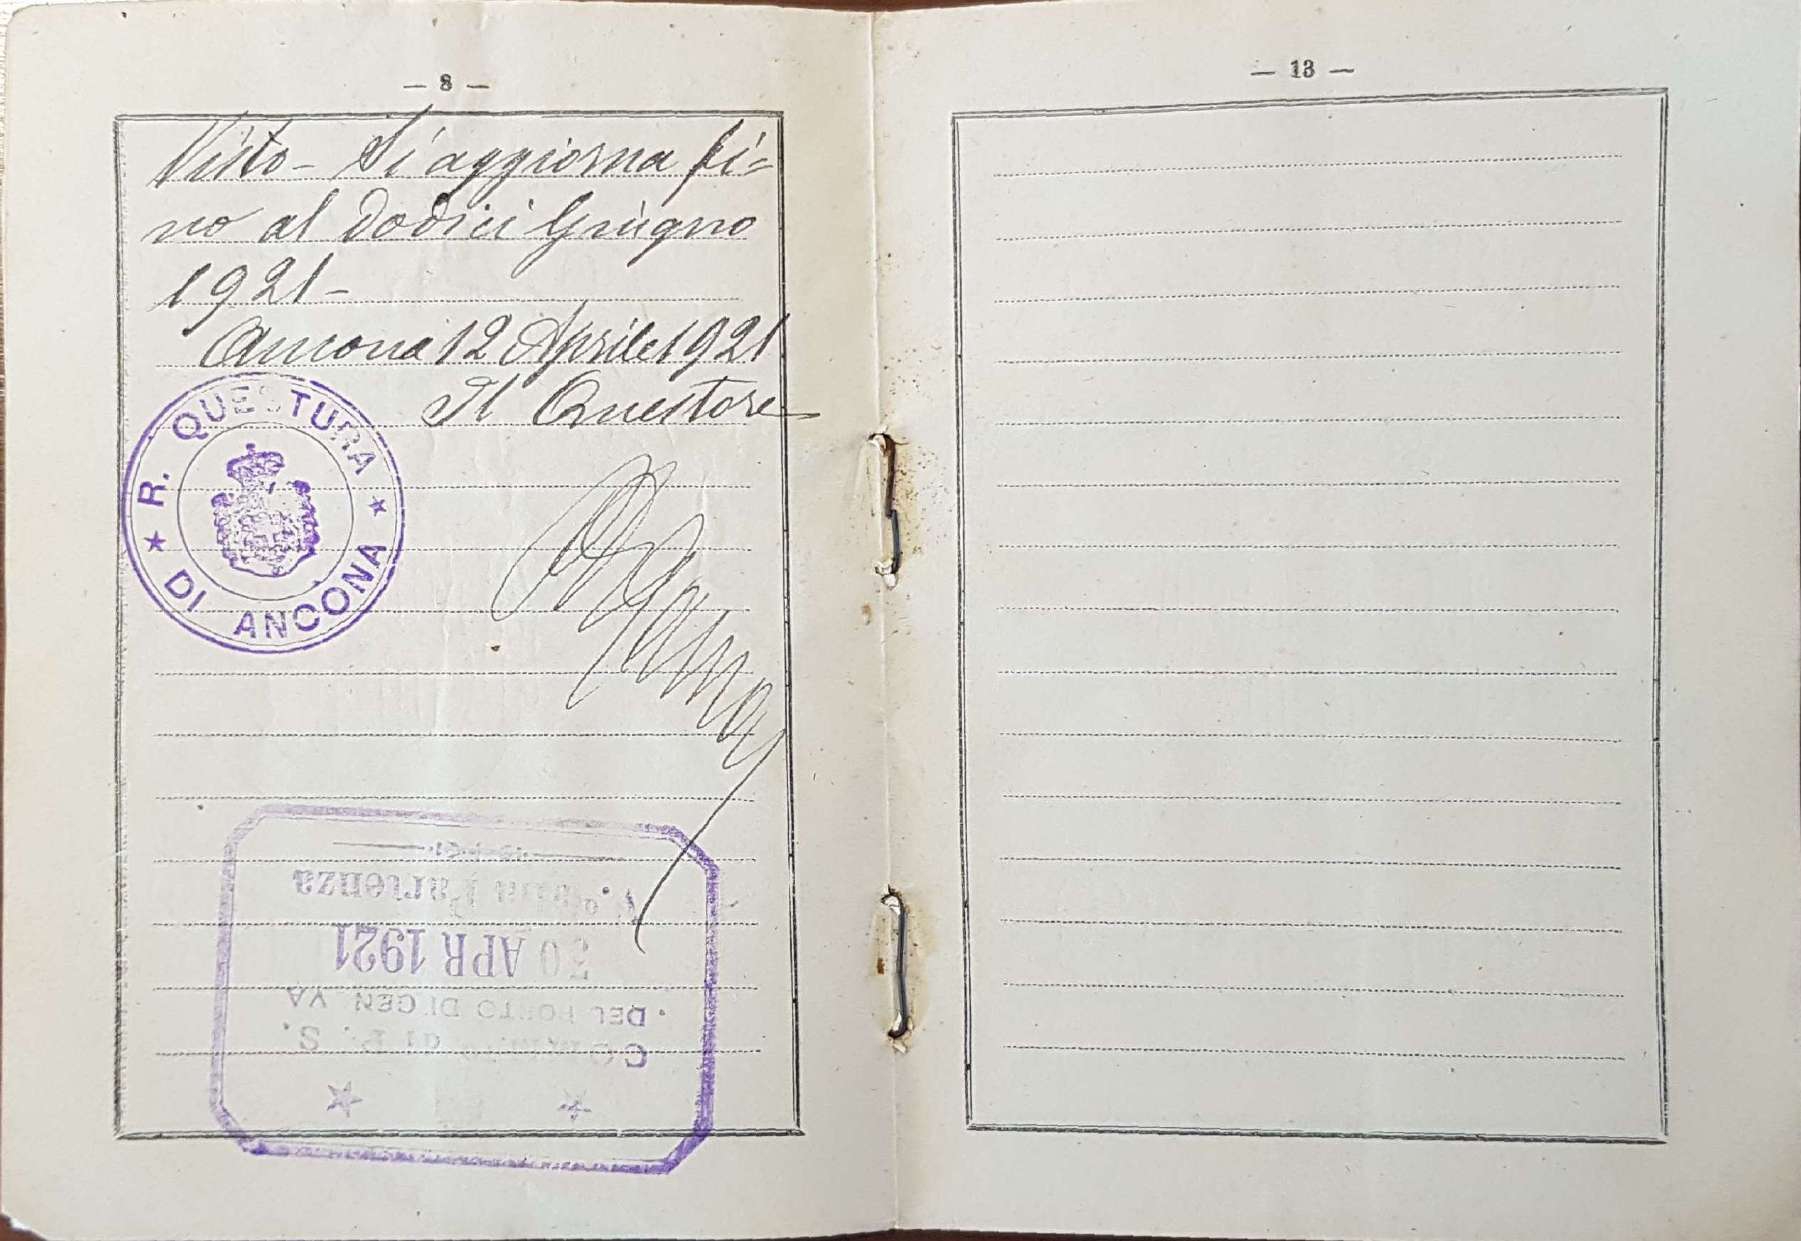 — 8 —
Visto - Si aggiorna fi=
no al dodici Giugno
1921 -
Ancona 12 Aprile 1921
Il Questore
R. QUESTURA
★ DI ANCONA ★
COMM.to di P. S.
DEL PORTO DI GENOVA
30 APR 1921
V.° alla Partenza
— 13 —